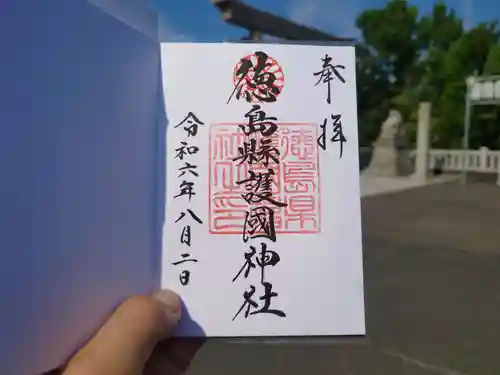 奉拝
徳島縣護國神社
令和六年八月二日
徳島県
社之印